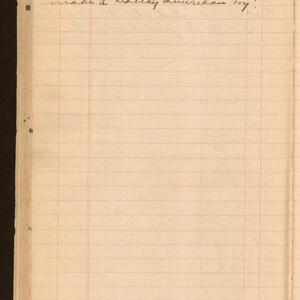 make a healthy American boy.